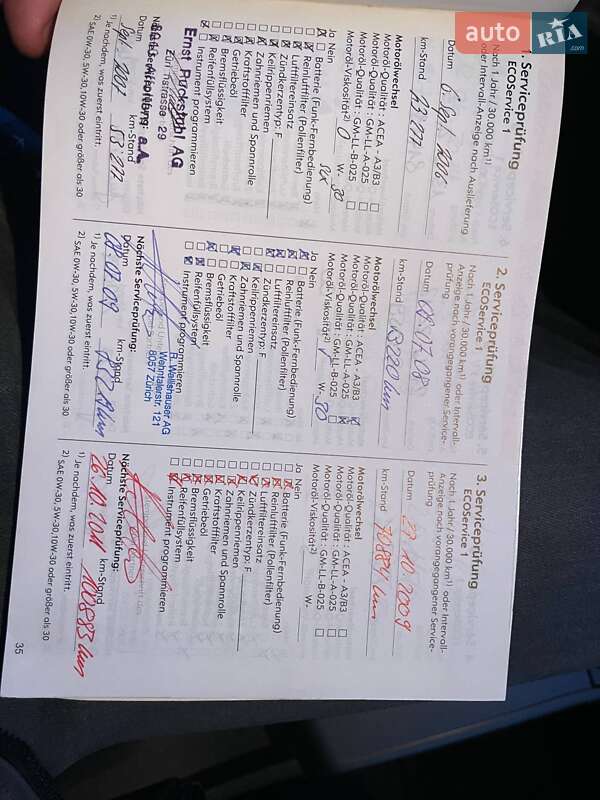 auto RIA .com
1. Serviceprüfung
ECOService 1
Nach 1 Jahr / 30.000 km¹⁾
oder Intervall-Anzeige nach Auslieferung
Datum 6. Sept. 2006
km-Stand
Motorölwechsel
Motoröl-Qualität: ACEA - A3/B3 ☐
Motoröl-Qualität: GM-LL-A-025 ☐
Motoröl-Qualität: GM-LL-B-025 ☐
Motoröl-Viskosität²⁾ 0 W- 30
Ja Nein
Batterie (Funk-Fernbedienung)
Reinluftfilter (Pollenfilter)
Luftfiltereinsatz
Zündkerzentyp: F
Keilrippenriemen
Zahnriemen und Spannrolle
Kraftstofffilter
Getriebeöl
Bremsflüssigkeit
Reifenfüllsystem
Instrument programmieren
Ernst Ruckstuhl AG
29
Datum
km-Stand
53'277
1) Je nachdem, was zuerst eintritt.
2) SAE 0W-30, 5W-30, 10W-30 oder größer als 30
2. Serviceprüfung
ECOService 1
Nach 1 Jahr / 30.000 km¹⁾ oder Intervall-
Anzeige nach vorangegangener Service-
prüfung
Datum 08.07.08
km-Stand
Motorölwechsel
Motoröl-Qualität: ACEA - A3/B3
Motoröl-Qualität: GM-LL-A-025
Motoröl-Qualität: GM-LL-B-025
Motoröl-Viskosität²⁾ W- 30
Ja Nein
Batterie (Funk-Fernbedienung)
Reinluftfilter (Pollenfilter)
Luftfiltereinsatz
Zündkerzentyp: F
Keilrippenriemen
Zahnriemen und Spannrolle
Kraftstofffilter
Getriebeöl
Bremsflüssigkeit
Reifenfüllsystem
Instrument programmieren
R. Wallishauser AG
Wehntalerstr. 121
8057 Zürich
Nächste Serviceprüfung:
Datum
km-Stand
08.07.09
1) Je nachdem, was zuerst eintritt.
2) SAE 0W-30, 5W-30, 10W-30 oder größer als 30
3. Serviceprüfung
ECOService 1
Nach 1 Jahr / 30.000 km¹⁾ oder Intervall-
Anzeige nach vorangegangener Service-
prüfung
Datum 27.10.2009
km-Stand 70884 km
Motorölwechsel
Motoröl-Qualität: ACEA - A3/B3 ☐
Motoröl-Qualität: GM-LL-A-025 ☐
Motoröl-Qualität: GM-LL-B-025 ☐
Motoröl-Viskosität²⁾ W-
Ja Nein
Batterie (Funk-Fernbedienung)
Reinluftfilter (Pollenfilter)
Luftfiltereinsatz
Zündkerzentyp: F
Keilrippenriemen
Zahnriemen und Spannrolle
Kraftstofffilter
Getriebeöl
Bremsflüssigkeit
Reifenfüllsystem
Instrument programmieren
Nächste Serviceprüfung:
Datum
km-Stand
26.10.2011 100883 km
1) Je nachdem, was zuerst eintritt.
2) SAE 0W-30, 5W-30, 10W-30 oder größer als 30
35